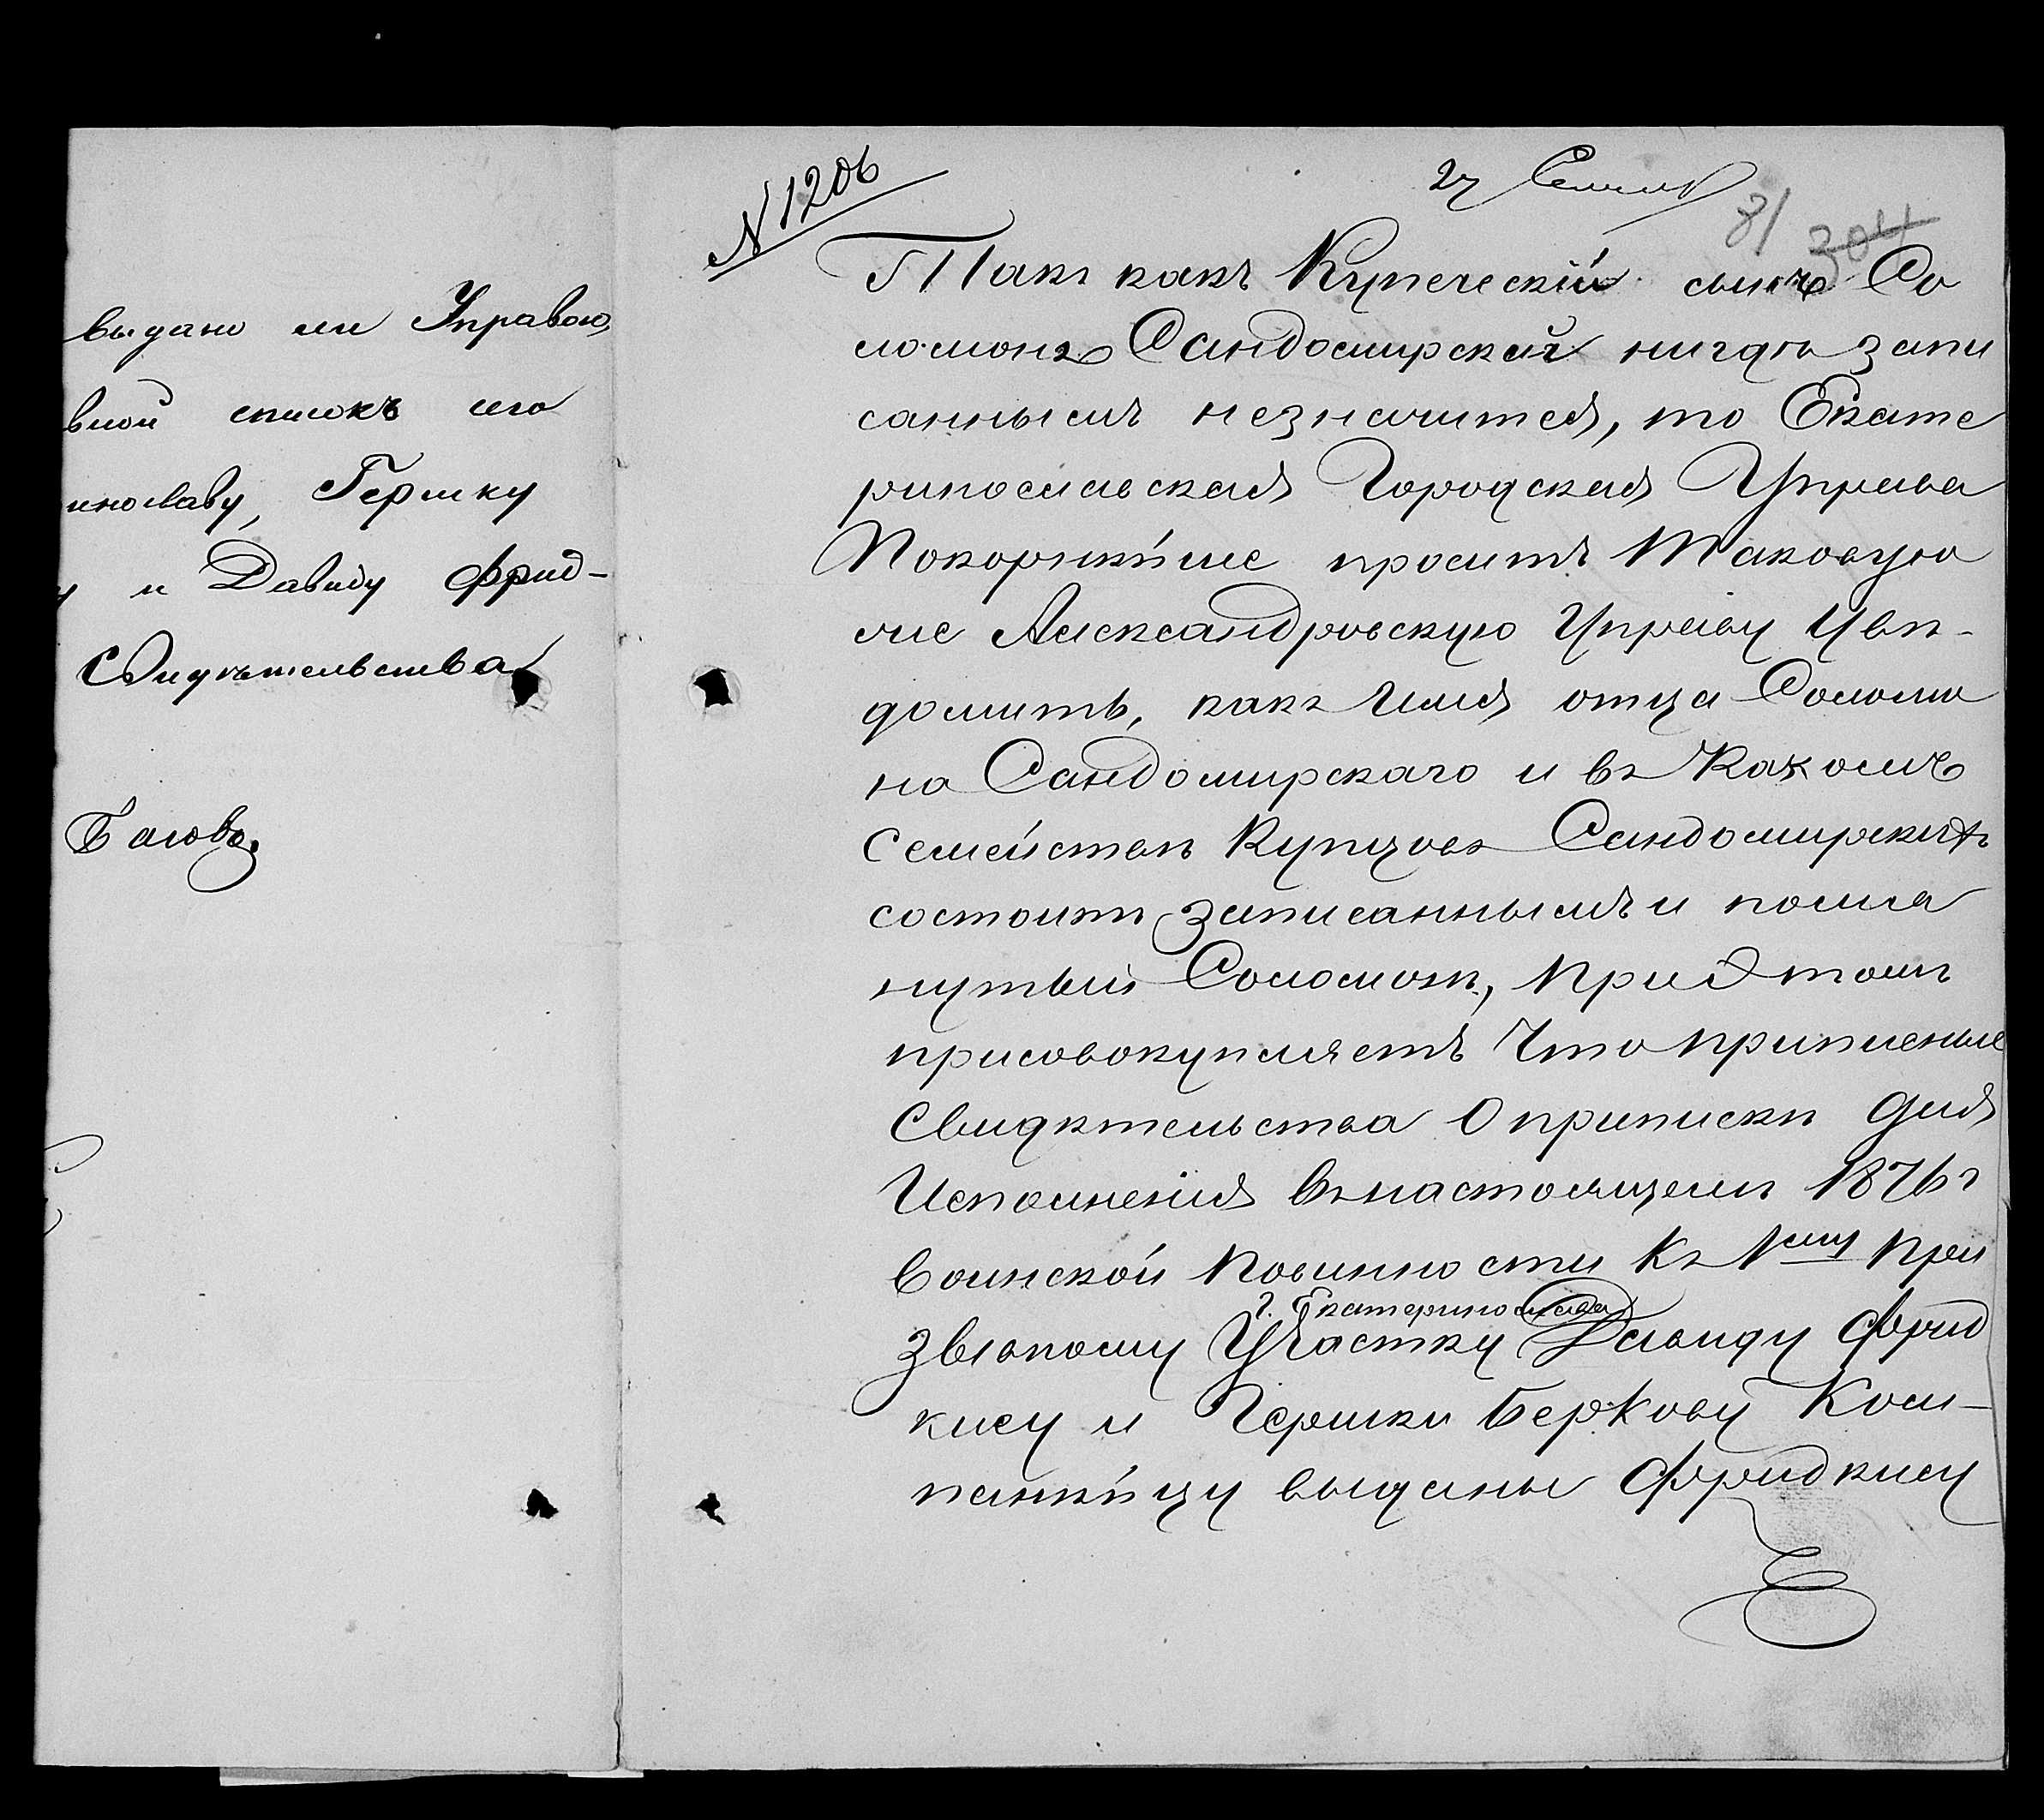 выдано ли Управою,
вной списокъ его
инославу, Гершку
у и Давиду Фрид-
Свидѣтельства
Баловъ.
N 1206
27 Сентяб
81 304
Такъ какъ Купеческій сынъ Со
ломонъ Сандомирскій нигдѣ запи
саннымъ незначится, то Екате
ринославская Городская Управа
Покорнѣйше проситъ Таковую
же Александровскую Управу Увѣ-
домить, какъ Имя отца Соломо
на Сандомирскаго и въ Какомъ
Семействѣ Купцовъ Сандомирскихъ
состоитъ Записаннымъ и помя
нутый Соломонъ, При Этомъ
присовокупляетъ Что приписные
Свидѣтельства О приписки Для
Исполненія Внастоящемъ 1876 г
Воинской Повинности Къ 1му При
г. Екатеринослава
зывному Участку Давиду Фрид
кису и Гершки Беркову Ком-
панѣйцу выданы Фридкису